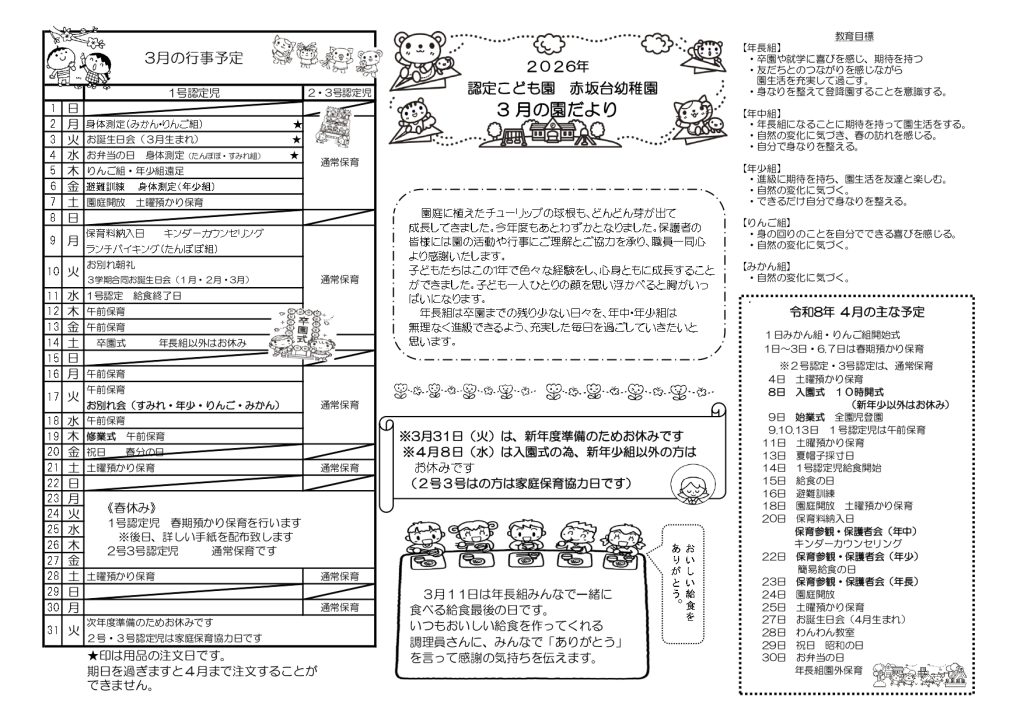 3月の行事予定
1号認定児 2・3号認定児
1 日
2 月 身体測定(みかん・りんご組) ★
3 火 お誕生日会(3月生まれ) ★
4 水 お弁当の日 身体測定(たんぽぽ・すみれ組) ★ 通常保育
5 木 りんご組・年少組遠足
6 金 避難訓練 身体測定(年少組)
7 土 園庭開放 土曜預かり保育
8 日
9 月 保育料納入日 キンダーカウンセリング
ランチバイキング(たんぽぽ組)
10 火 お別れ朝礼
3学期合同お誕生日会(1月・2月・3月) 通常保育
11 水 1号認定 給食終了日
12 木 午前保育
13 金 午前保育
14 土 卒園式 年長組以外はお休み
卒園式
15 日
16 月 午前保育
17 火 午前保育
お別れ会(すみれ・年少・りんご・みかん) 通常保育
18 水 午前保育
19 木 修業式 午前保育
20 金 祝日 春分の日
21 土 土曜預かり保育 通常保育
22 日
23 月
24 火
25 水
26 木
27 金
《春休み》
1号認定児 春期預かり保育を行います
※後日、詳しい手紙を配布致します
2号3号認定児 通常保育です
28 土 土曜預かり保育 通常保育
29 日
30 月 通常保育
31 火 次年度準備のためお休みです
2号・3号認定児は家庭保育協力日です
★印は用品の注文日です。
期日を過ぎますと4月まで注文することが
できません。
2026年
認定こども園 赤坂台幼稚園
3月の園だより
園庭に植えたチューリップの球根も、どんどん芽が出て
成長してきました。今年度もあとわずかとなりました。保護者の
皆様には園の活動や行事にご理解とご協力を承り、職員一同心
より感謝いたします。
子どもたちはこの1年で色々な経験をし、心身ともに成長すること
ができました。子ども一人ひとりの顔を思い浮かべると胸がいっ
ぱいになります。
年長組は卒園までの残り少ない日々を、年中・年少組は
無理なく進級できるよう、充実した毎日を過ごしていきたいと
思います。
※3月31日(火)は、新年度準備のためお休みです
※4月8日(水)は入園式の為、新年少組以外の方は
お休みです
(2号3号はの方は家庭保育協力日です)
おいしい給食を
ありがとう。
3月11日は年長組みんなで一緒に
食べる給食最後の日です。
いつもおいしい給食を作ってくれる
調理員さんに、みんなで「ありがとう」
を言って感謝の気持ちを伝えます。
教育目標
【年長組】
・卒園や就学に喜びを感じ、期待を持つ
・友だちとのつながりを感じながら
園生活を充実して過ごす。
・身なりを整えて登降園することを意識する。
【年中組】
・年長組になることに期待を持って園生活をする。
・自然の変化に気づき、春の訪れを感じる。
・自分で身なりを整える。
【年少組】
・進級に期待を持ち、園生活を友達と楽しむ。
・自然の変化に気づく。
・できるだけ自分で身なりを整える。
【りんご組】
・身の回りのことを自分でできる喜びを感じる。
・自然の変化に気づく。
【みかん組】
・自然の変化に気づく。
令和8年 4月の主な予定
1日みかん組・りんご組開始式
1日~3日・6,7日は春期預かり保育
※2号認定・3号認定は、通常保育
4日 土曜預かり保育
8日 入園式 10時開式
(新年少以外はお休み)
9日 始業式 全園児登園
9,10,13日 1号認定児は午前保育
11日 土曜預かり保育
13日 夏帽子採寸日
14日 1号認定児給食開始
15日 給食の日
16日 避難訓練
18日 園庭開放 土曜預かり保育
20日 保育料納入日
保育参観・保護者会(年中)
キンダーカウンセリング
22日 保育参観・保護者会(年少)
簡易給食の日
23日 保育参観・保護者会(年長)
24日 園庭開放
25日 土曜預かり保育
27日 お誕生日会(4月生まれ)
28日 わんわん教室
29日 祝日 昭和の日
30日 お弁当の日
年長組園外保育